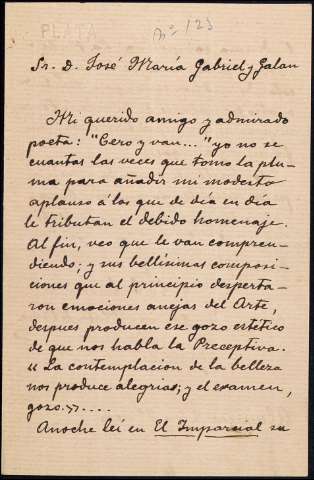 PLATA
Nº 123
Sr. D. José María Gabriel y Galan
Mi querido amigo y admirado
poeta: "Cero y van..." yo no se
cuantas las veces que tomo la plu-
ma para añadir mi modesto
aplauso á los que de dia en dia
le tributan el debido homenaje.
Al fin, veo que le van compren-
diendo; y sus bellísimas composi-
ciones que al principio desperta-
ron emociones anejas del Arte,
despues producen ese gozo estético
de que nos habla la Preceptiva.
«La contemplacion de la belleza
nos produce alegrias; y el examen,
gozo.»....
Anoche leí en El Imparcial su